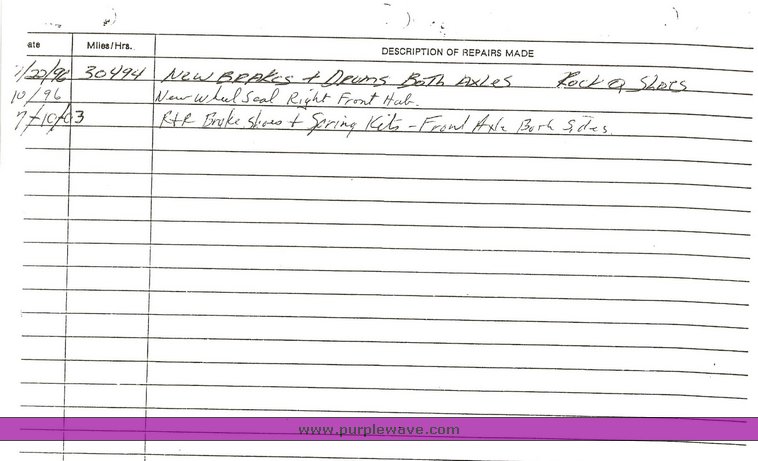 ate Miles/Hrs. DESCRIPTION OF REPAIRS MADE
/22/96 30494 New BRAKES + DRUMS BOTH AXLES ROCK Q SHOES
10/96 New Wheel Seal Right Front Hub.
7-10-03 R+R Brake Shoes + Spring Kits - Front Axle Both Sides
www.purplewave.com